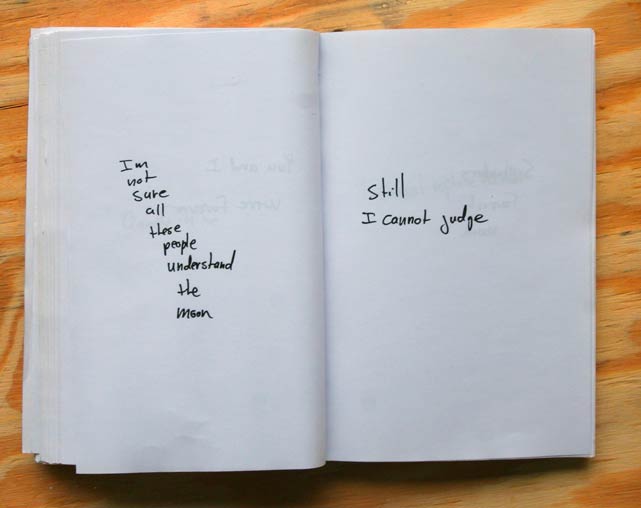 Im
not
sure
all
these
people
understand
the
moon
Still
I cannot judge